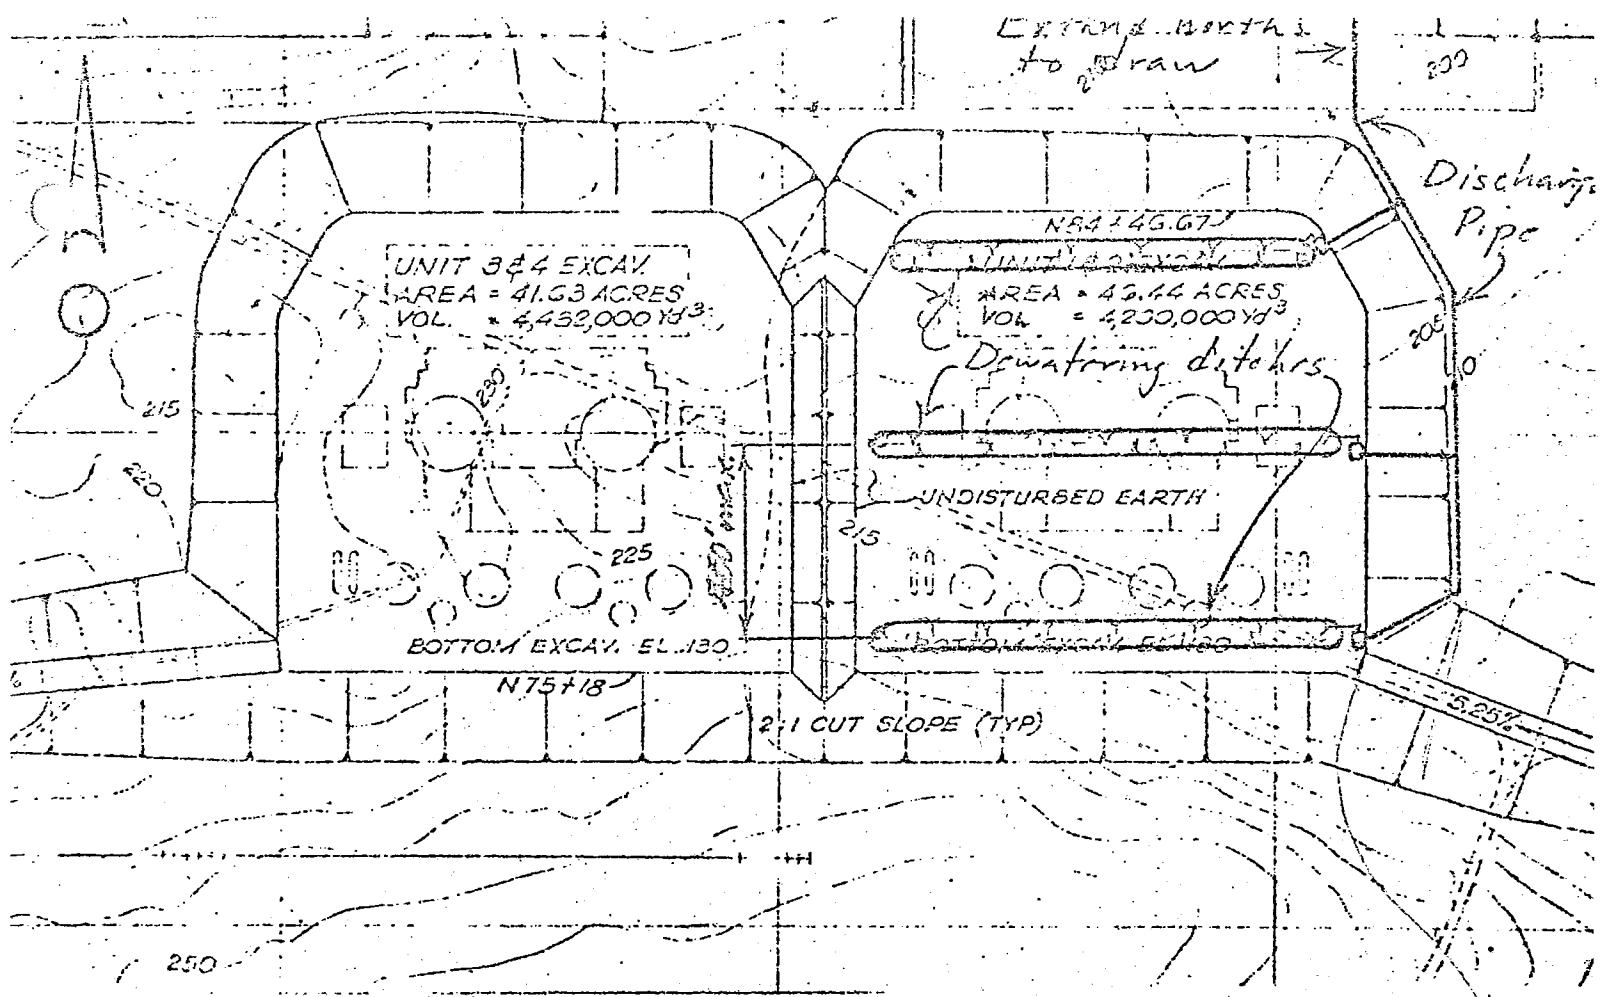 Extend north
to Draw
200
Discharge
Pipe
N84+46.67
UNIT 3&4 EXCAV.
AREA = 41.63 ACRES
VOL. = 4,432,000 Yd³
UNIT 1&2 EXCAV.
AREA = 43.44 ACRES
VOL. = 4,230,000 Yd³
Dewatering ditches
230
215
220
UNDISTURBED EARTH
215
225
BOTTOM EXCAV. EL. 130
BOTTOM EXCAV. EL. 130
N75+18
2:1 CUT SLOPE (TYP)
5.25%
250